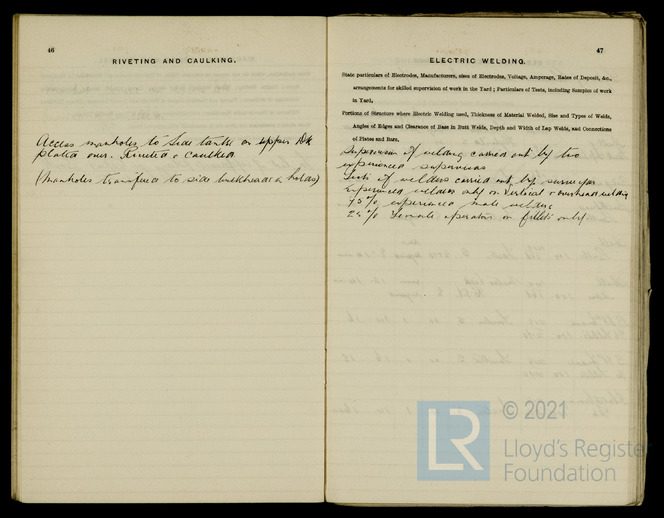 46
RIVETING AND CAULKING.
Access manholes to side tanks on upper Dk
plated over. Riveted & caulked.
(Manholes transfered to side bulkheads in holds)
47
ELECTRIC WELDING.
State particulars of Electrodes, Manufacturers, sizes of Electrodes, Voltage, Amperage, Rates of Deposit, &c.,
arrangements for skilled supervision of work in the Yard; Particulars of Tests, including Samples of work
in Yard.
Portions of Structure where Electric Welding used, Thickness of Material Welded, Size and Types of Welds,
Angles of Edges and Clearance of Base in Butt Welds, Depth and Width of Lap Welds, and Connections
of Plates and Bars.
Supervision of welding carried out by two
experienced supervisors
Tests of welders carried out by surveyor
Experienced welders only on vertical & overhead welding
75% experienced male welders
25% Female operators on fillets only
LR © 2021
Lloyd's Register
Foundation